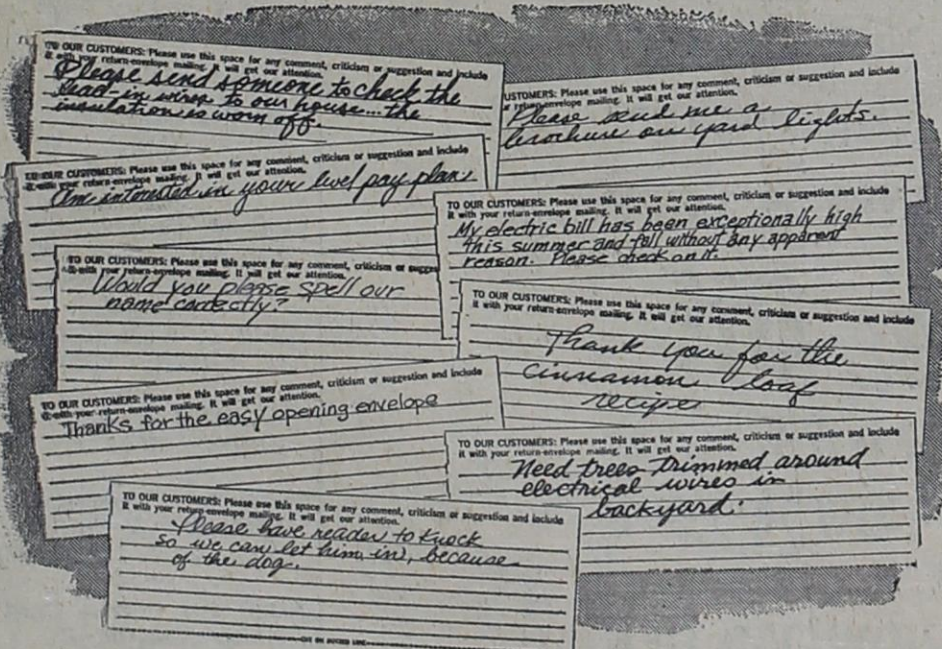 TO OUR CUSTOMERS: Please use this space for any comment, criticism or suggestion and include
it with your return-envelope mailing. It will get our attention.
Please send someone to check the
lead-in wires to our house... the
insulation is worn off.
USTOMERS: Please use this space for any comment, criticism or suggestion and include
r return-envelope mailing. It will get our attention.
Please send me a
brochure on yard lights.
TO OUR CUSTOMERS: Please use this space for any comment, criticism or suggestion and include
it with your return-envelope mailing. It will get our attention.
Am interested in your level pay plan
TO OUR CUSTOMERS: Please use this space for any comment, criticism or suggestion and include
it with your return-envelope mailing. It will get our attention.
My electric bill has been exceptionally high
this summer and fall without any apparent
reason. Please check on it.
TO OUR CUSTOMERS: Please use this space for any comment, criticism or sugges
it with your return-envelope mailing. It will get our attention.
Would you please spell our
name correctly?
TO OUR CUSTOMERS: Please use this space for any comment, criticism or suggestion and include
it with your return-envelope mailing. It will get our attention.
Thank you for the
cinnamon loaf
recipe
TO OUR CUSTOMERS: Please use this space for any comment, criticism or suggestion and include
it with your return-envelope mailing. It will get our attention.
Thanks for the easy opening envelope
TO OUR CUSTOMERS: Please use this space for any comment, criticism or suggestion and include
it with your return-envelope mailing. It will get our attention.
Need trees trimmed around
electrical wires in
backyard.
TO OUR CUSTOMERS: Please use this space for any comment, criticism or suggestion and include
it with your return-envelope mailing. It will get our attention.
Please have reader to knock
so we can let him in, because
of the dog.
CUT ON DOTTED LINE